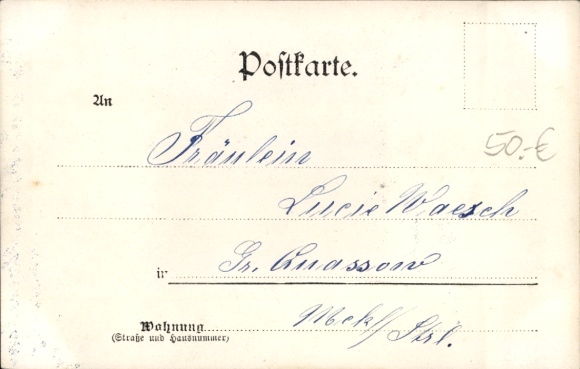 Postkarte.
An
Fräulein
50.-€
Lucie Waesch
in Gr. Quassow
Wohnung
Meckl/Strl.
(Straße und Hausnummer)